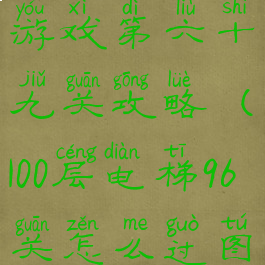 yóu xì dì liù shí
游戏第六十
jiǔ guān gōng lüè
九关攻略(
céng diàn tī
100层电梯96
guān zěn me guò tú
关怎么过图